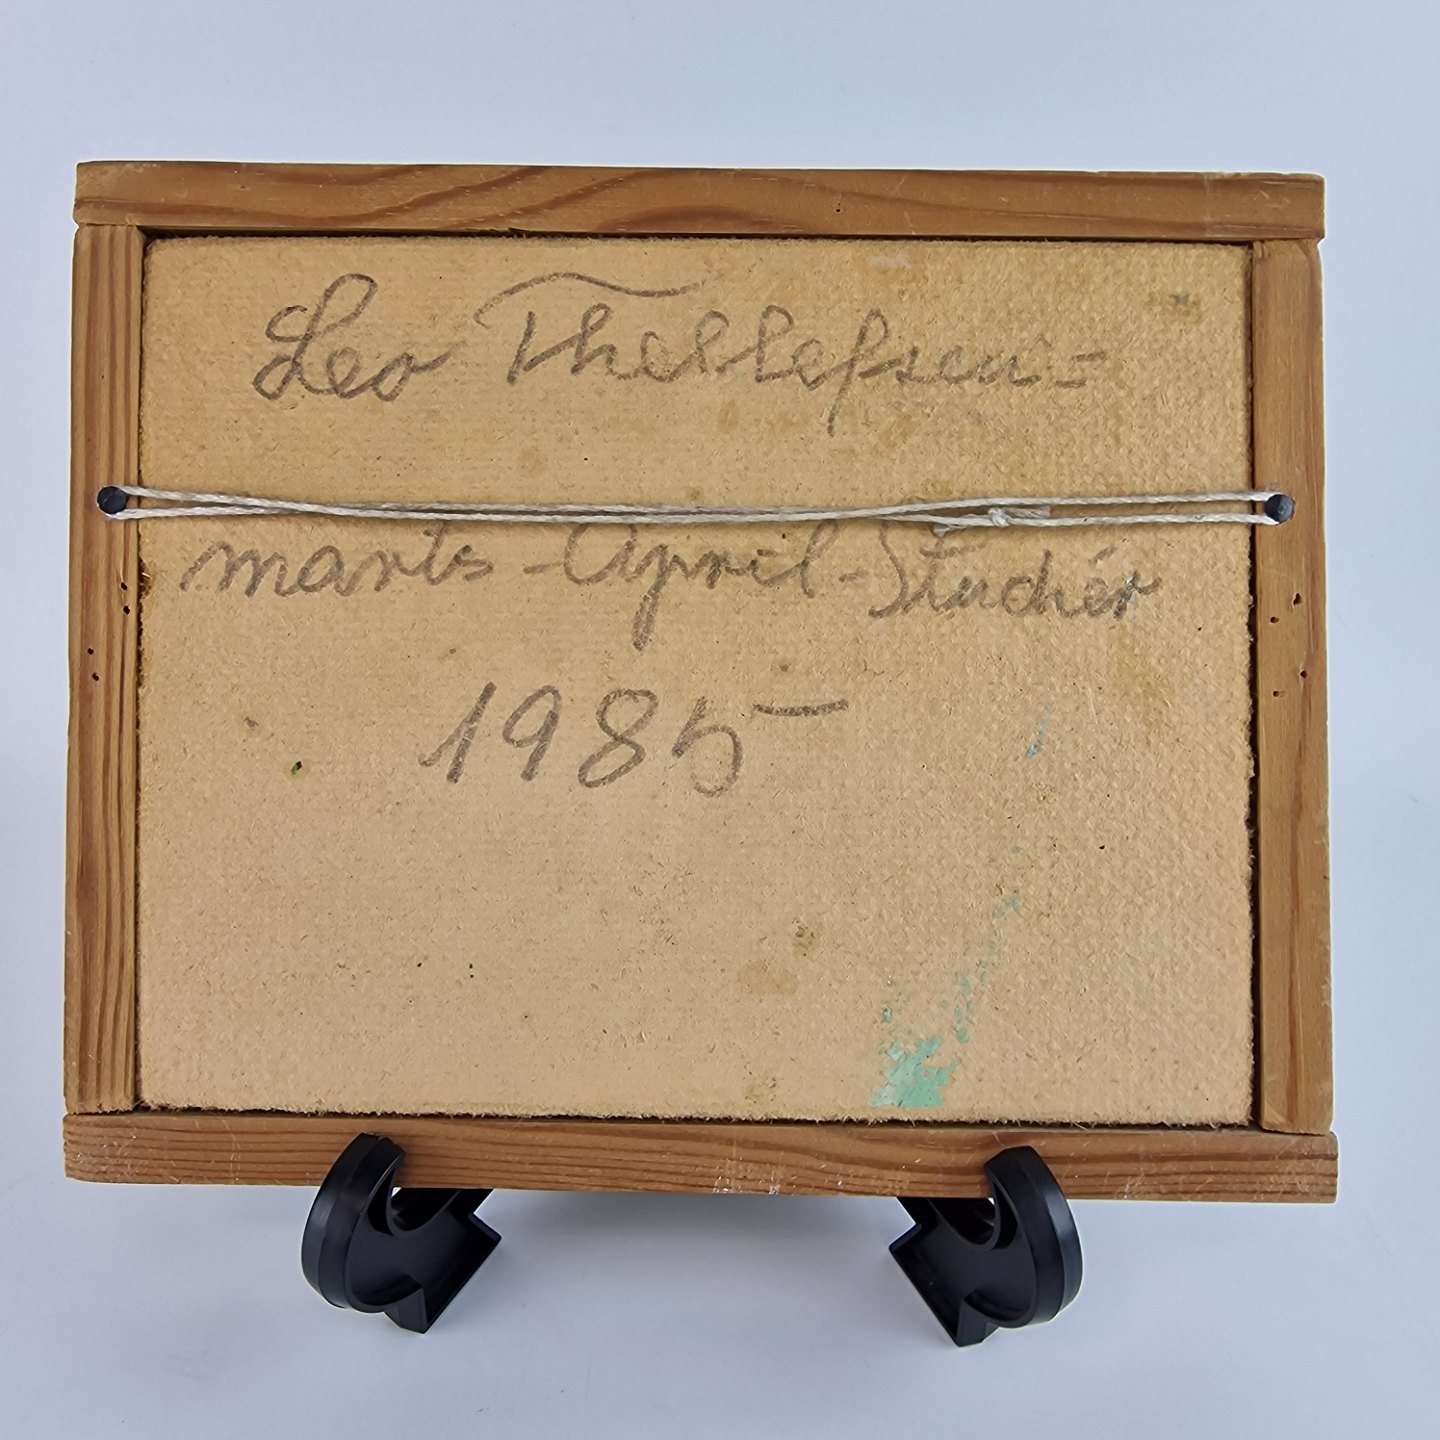 Leo Thellefsen=
marts-April-Studiér
1985